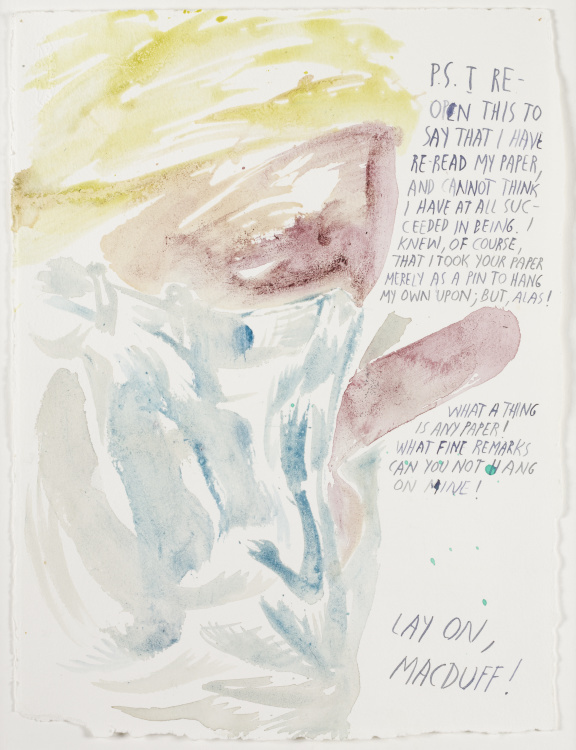 P.S. I RE-
OPEN THIS TO
SAY THAT I HAVE
RE-READ MY PAPER,
AND CANNOT THINK
I HAVE AT ALL SUC-
CEEDED IN BEING. I
KNEW, OF COURSE,
THAT I TOOK YOUR PAPER
MERELY AS A PIN TO HANG
MY OWN UPON; BUT, ALAS!
WHAT A THING
IS ANY PAPER!
WHAT FINE REMARKS
CAN YOU NOT HANG
ON MINE!
LAY ON,
MACDUFF!